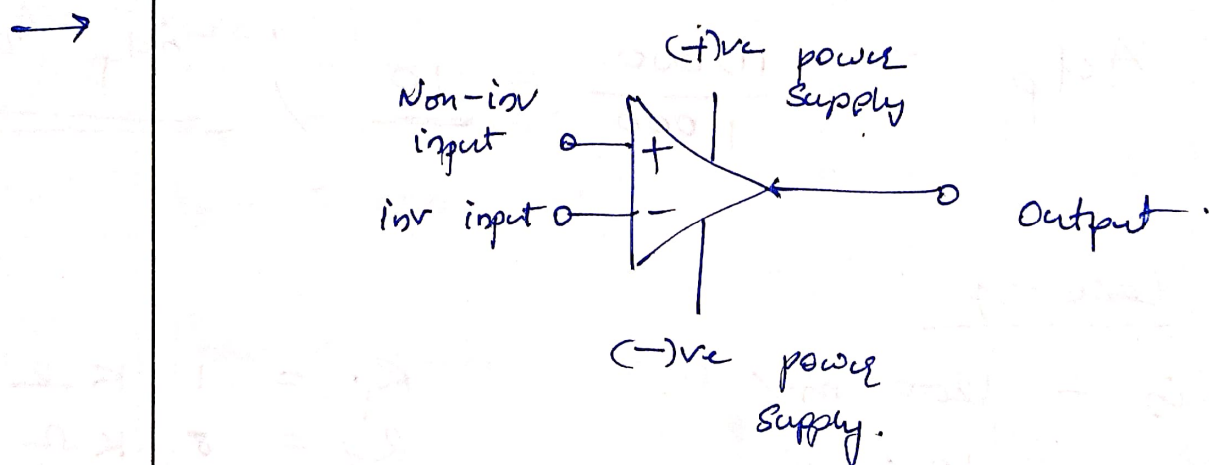 (+)ve power
Supply
Non-inv
input
+
inv input
-
Output.
(-)ve power
Supply.